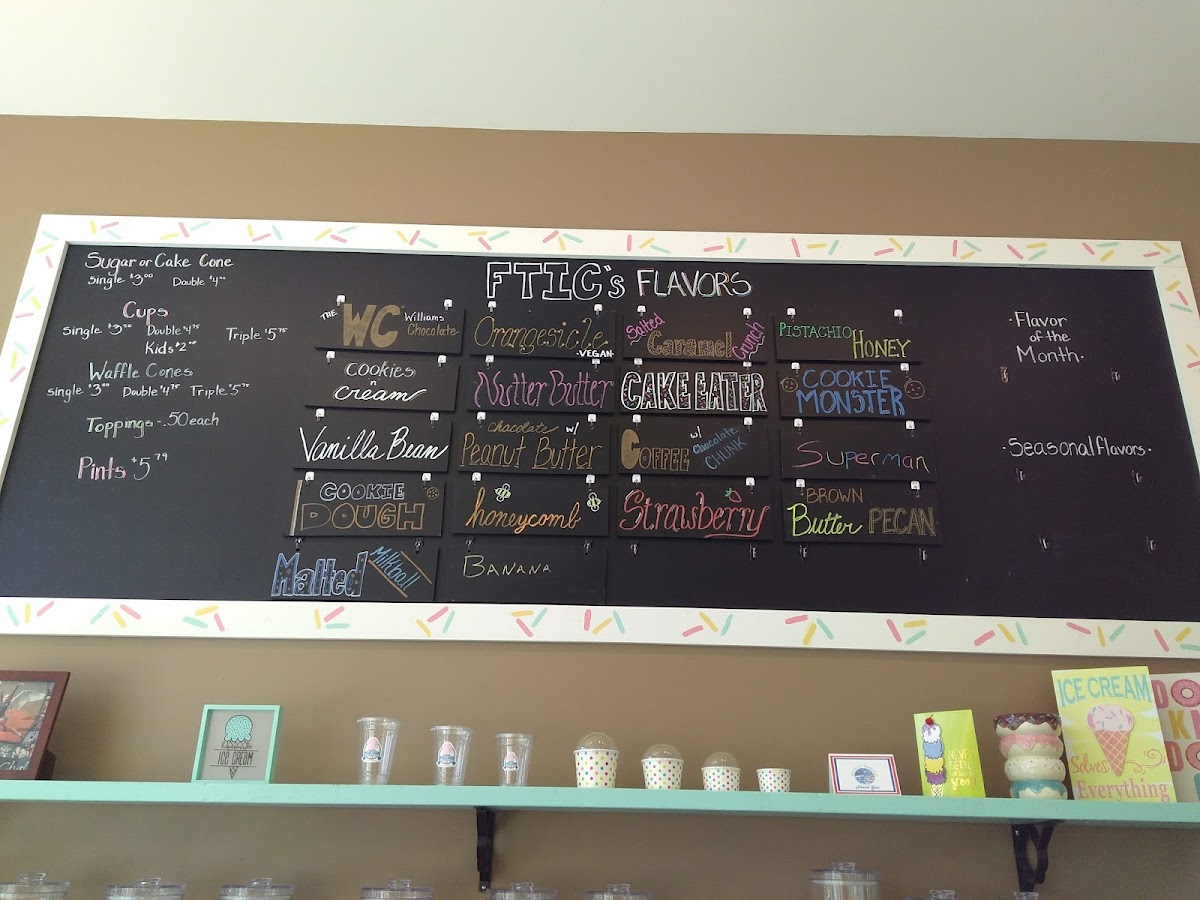 Sugar or Cake Cone
Single $3.00 Double $4.00
Cups
Single $3.00 Double $4.75 Triple $5.75
Kids $2.00
Waffle Cones
Single $3.00 Double $4.75 Triple $5.75
Toppings - .50 each
Pints $5.79
FTIC's FLAVORS
THE WC Williams Chocolate
Orangesicle
·VEGAN·
Salted Caramel Crunch
PISTACHIO HONEY
COOKIES
'n'
Cream
Nutter Butter
CAKE EATER
COOKIE
MONSTER
Vanilla Bean
Chocolate w/
Peanut Butter
COFFEE w/ Chocolate CHUNK
Superman
COOKIE
DOUGH
honeycomb
Strawberry
BROWN
Butter PECAN
Malted Milkball
BANANA
·Flavor
of the
Month·
·Seasonal Flavors·
ICE CREAM
Thank You
ICE CREAM
Solves
Everything